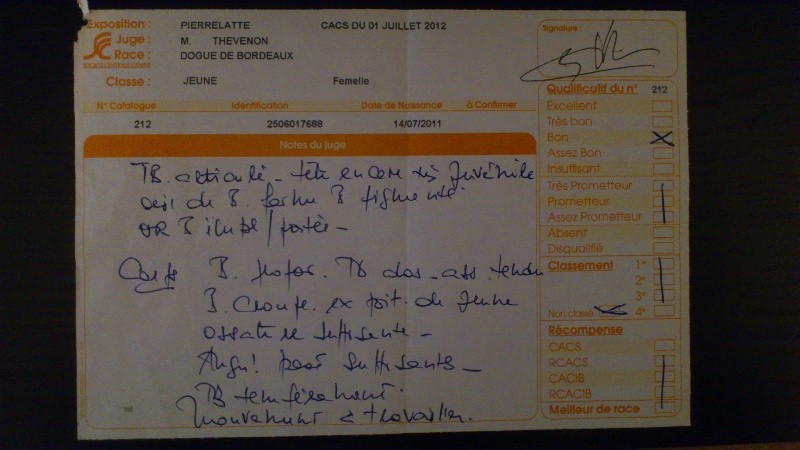 Exposition : PIERRELATTE CACS DU 01 JUILLET 2012
Juge : M. THEVENON
Race : DOGUE DE BORDEAUX
Classe : JEUNE Femelle
N° Catalogue Identification Date de Naissance à Confirmer
212 2506017688 14/07/2011
Notes du juge
TB. articulé - tête encore très Juvénile
œil de B. forme B pigmenté
OR B /portée -
Corps B. propor. TB dos - ass. tendu
B. Croupe. ex poit. de Jeune
ossature suffisante -
Angu! post suffisants -
TB tempérament.
Mouvement à travailler.
Signature :
Qualificatif du n° 212
Excellent
Très bon
Bon
Assez Bon
Insuffisant
Très Prometteur
Prometteur
Assez Prometteur
Absent
Disqualifié
Classement 1er
2e
3e
Non classé 4e
Récompense
CACS
RCACS
CACIB
RCACIB
Meilleur de race